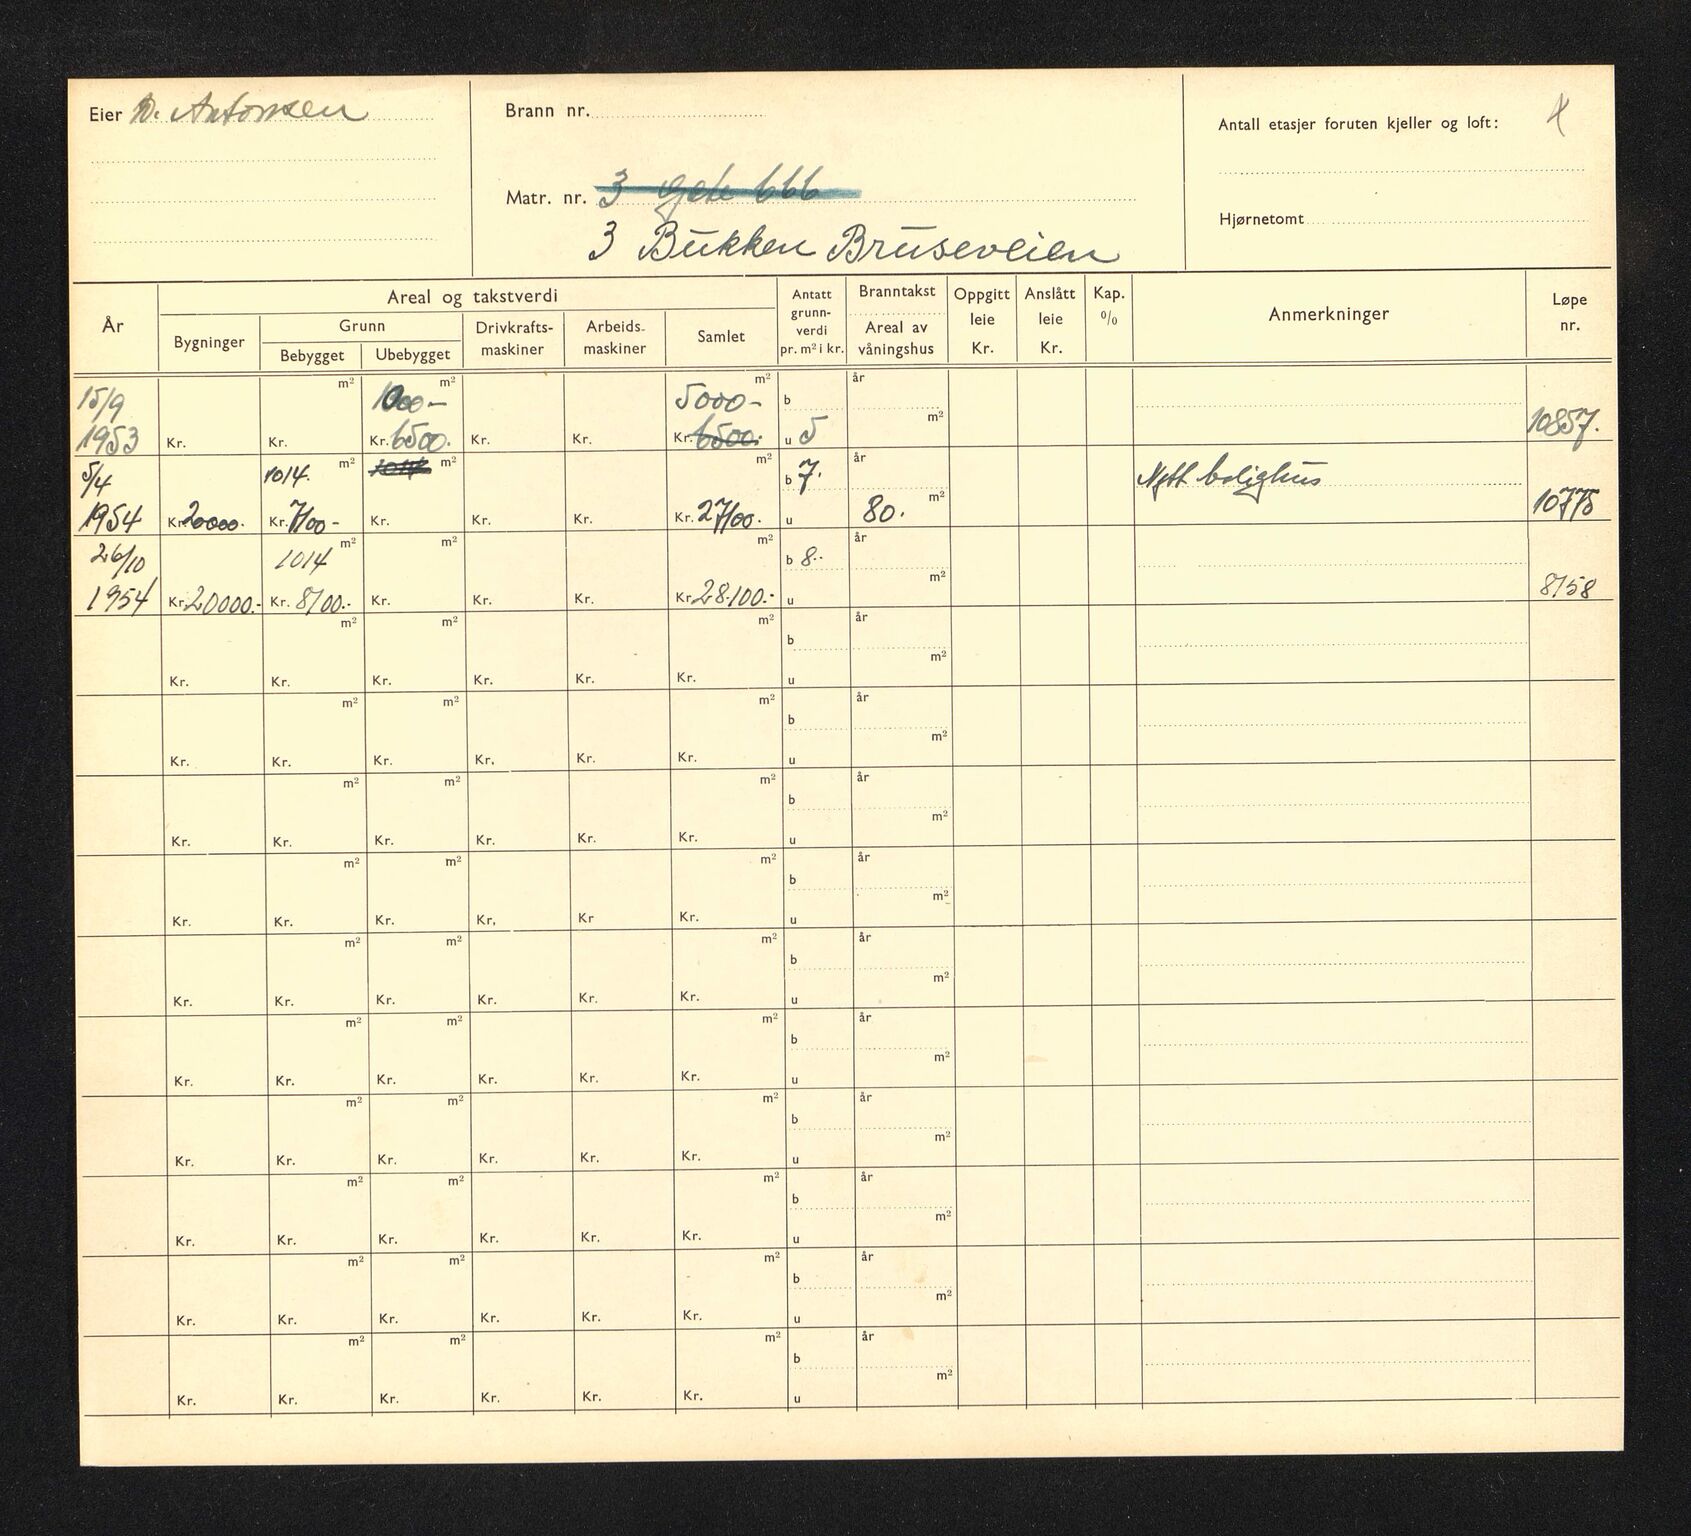 Eier W. Antonsen
Brann nr.
Antall etasjer foruten kjeller og loft:
Matr. nr. 3 Gate 666
3 Bukken Bruseveien
Hjørnetomt
År
Areal og takstverdi
Bygninger
Grunn
Bebygget
Ubebygget
Drivkrafts-
maskiner
Arbeids-
maskiner
Samlet
Antatt
grunn-
verdi
pr. m² i kr.
Branntakst
Areal av
våningshus
Oppgitt
leie
Kr.
Anslått
leie
Kr.
Kap.
%
Anmerkninger
Løpe
nr.
15/9 m² 1000- m² 5000- m² b år
1953 Kr. Kr. Kr. 6500. Kr. Kr. Kr. 6500. u 5 m² 10857.
5/4 1014. m² 1014 m² m² b 7. år Nytt bolighus
1954 Kr. 20000. Kr. 7100- Kr. Kr. Kr. Kr. 27100. u 80. m² 10775
26/10 1014 m² m² m² b 8.- år
1954 Kr. 20000.- Kr. 8100.- Kr. Kr. Kr. Kr. 28.100.- u m² 8158
m² m² m² b år
Kr. Kr. Kr. Kr. Kr. Kr. u m²
m² m² m² b år
Kr. Kr. Kr. Kr. Kr. Kr. u m²
m² m² m² b år
Kr. Kr. Kr. Kr. Kr. Kr. u m²
m² m² m² b år
Kr. Kr. Kr. Kr. Kr Kr. u m²
m² m² m² b år
Kr. Kr. Kr. Kr. Kr. Kr. u m²
m² m² m² b år
Kr. Kr. Kr. Kr. Kr. Kr. u m²
m² m² m² b år
Kr. Kr. Kr. Kr. Kr. Kr. u m²
m² m² m² b år
Kr. Kr. Kr. Kr. Kr. Kr. u m²
m² m² m² b år
Kr. Kr. Kr. Kr. Kr. Kr. u m²
m² m² m² b år
Kr. Kr. Kr. Kr. Kr. Kr. u m²